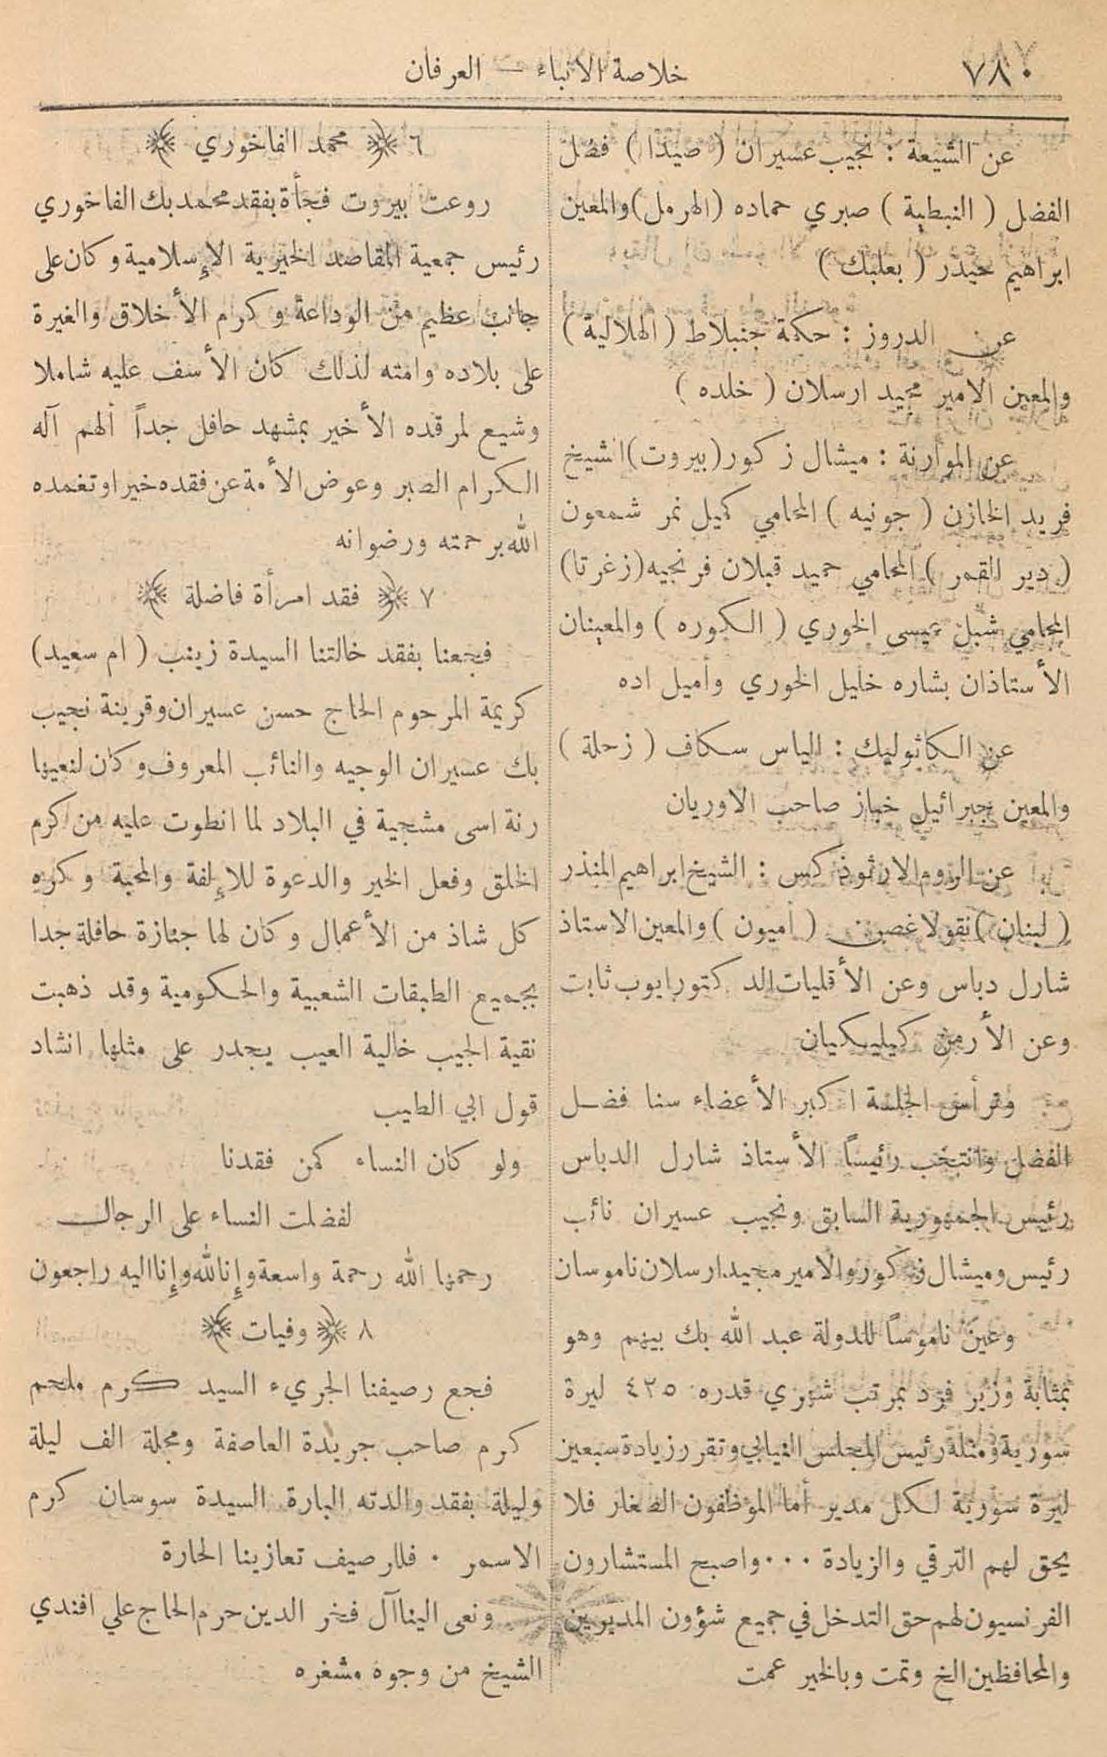 ٧٨٠
خلاصة الانباء — العرفان
عن الشيعة : نجيب عسيران ( صيدا ) فضل
الفضل ( النبطية ) صبري حماده (الهرمل) والمعين
ابراهيم حيدر ( بعلبك )
عن الدروز : حكمة جنبلاط ( الهلالية )
والمعين الامير مجيد ارسلان ( خلده )
عن الموارنة : ميشال زكور (بيروت) الشيخ
فريد الخازن ( جونيه ) المحامي كميل نمر شمعون
( دير القمر ) المحامي حميد قبلان فرنجيه (زغرتا)
المحامي شبل عيسى الخوري ( الكوره ) والمعينان
الأستاذان بشاره خليل الخوري وأميل اده
عن الكاثوليك : الياس سكاف ( زحلة )
والمعين جبرائيل خباز صاحب الاوريان
عن الروم الارثوذكس : الشيخ ابراهيم المنذر
( لبنان ) نقولا غصن ( أميون ) والمعين الاستاذ
شارل دباس وعن الأقليات الدكتور ايوب ثابت
وعن الأرمن كيليكيان
وترأس الجلسة اكبر الأعضاء سنا فضل
الفضل وانتخب رئيساً الأستاذ شارل الدباس
رئيس الجمهورية السابق ونجيب عسيران نائب
رئيس وميشال زكور والامير مجيد ارسلان ناموسان
وعين ناموساً للدولة عبد الله بك بيهم وهو
بمثابة وزير فرد بمرتب شهري قدره ٤٢٥ ليرة
سورية ومثله رئيس المجلس النيابي وتقرر زيادة سبعين
ليرة سورية لكل مدير أما الموظفون الصغار فلا
يحق لهم الترقي والزيادة ... واصبح المستشارون
الفرنسيون لهم حق التدخل في جميع شؤون المديرين
والمحافظين الخ وتمت وبالخير عمت
٦ ﴿ محمد الفاخوري ﴾
روعت بيروت فجأة بفقد محمد بك الفاخوري
رئيس جمعية المقاصد الخيرية الإسلامية وكان على
جانب عظيم من الوداعة وكرم الأخلاق والغيرة
على بلاده وامته لذلك كان الأسف عليه شاملا
وشيع لمرقده الأخير بمشهد حافل جداً ألهم آله
الكرام الصبر وعوض الأمة عن فقده خيرا وتغمده
الله برحمته ورضوانه
٧ ﴿ فقد امرأة فاضلة ﴾
فجعنا بفقد خالتنا السيدة زينب ( ام سعيد)
كريمة المرحوم الحاج حسن عسيران وقرينة نجيب
بك عسيران الوجيه والنائب المعروف وكان لنعيها
رنة اسى مشجية في البلاد لما انطوت عليه من اكرم
الخلق وفعل الخير والدعوة للإلفة والمحبة وكره
كل شاذ من الأعمال وكان لها جنازة حافلة جدا
بجميع الطبقات الشعبية والحكومية وقد ذهبت
نقية الجيب خالية العيب يجدر على مثلها انشاد
قول ابي الطيب
ولو كان النساء كمن فقدنا
لفضلت النساء على الرجال
رحمها الله رحمة واسعة وإنا لله وإنا اليه راجعون
٨ ﴿ وفيات ﴾
فجع رصيفنا الجريء السيد كرم ملحم
كرم صاحب جريدة العاصفة ومجلة الف ليلة
وليلة بفقد والدته البارة السيدة سوسان كرم
الاسمر . فللرصيف تعازينا الحارة
ونعى الينا آل فخر الدين حرم الحاج علي افندي
الشيخ من وجوه مشغره